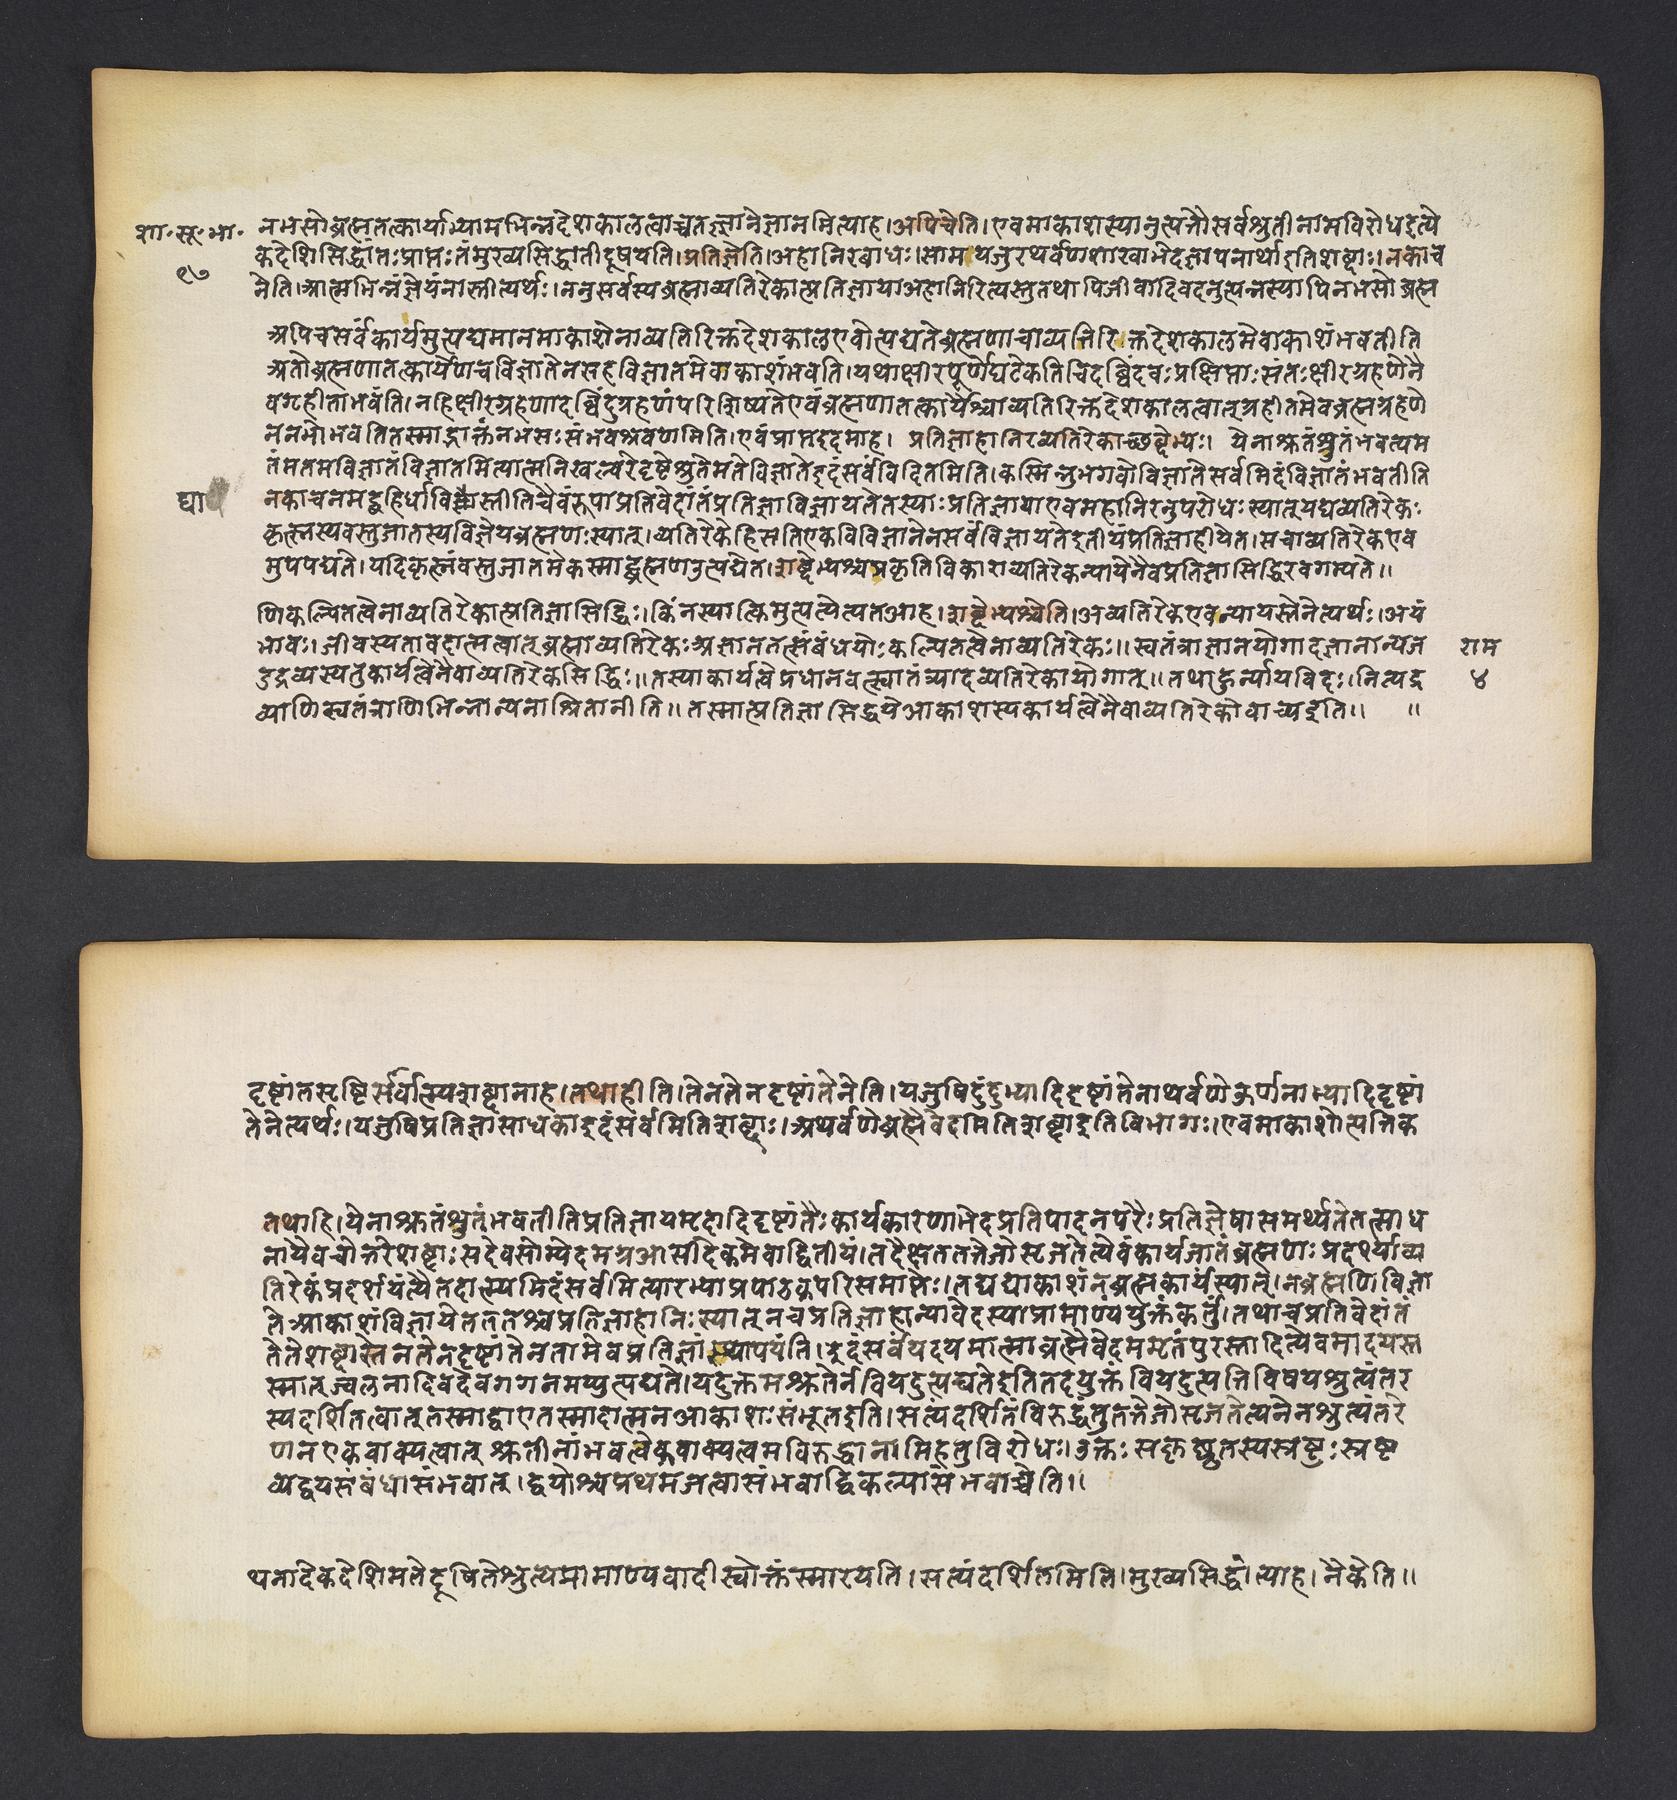 शा॰ सू॰ भा॰
९७
नभसोब्रह्मतत्कार्याभ्यामभिन्नदेशकालत्वाच्चतज्ज्ञानेज्ञानमित्याह।अपिचेति।एवमाकाशस्यानुत्पत्तौसर्वश्रुतीनामविरोधइत्ये
कदेशिसिद्धांतःप्राप्तःतंमुख्यसिद्धातीदूषयति।प्रतिज्ञेति।अहानिरबाधः।सामयजुरथर्वणशाखाभेदज्ञापनार्थाइतिशब्दाः।नकाच
नेति।आत्मभिन्नंज्ञेयंनास्तीत्यर्थः।ननुसर्वस्यब्रह्माव्यतिरेकात्प्रतिज्ञायाअहानिरित्यस्तुतथापिजीवादिवदनुत्पन्नस्यापिनभसोब्रह्म
अपिचसर्वंकार्यमुत्पद्यमानमाकाशेनाव्यतिरिक्तदेशकालएवोत्पद्यतेब्रह्मणाचाव्यतिरिक्तदेशकालमेवाकाशंभवतीति
अतोब्रह्मणातत्कार्येणचविज्ञातेनसहविज्ञातमेवाकाशंभवति।यथाक्षीरपूर्णेघटेकतिचिदब्बिंदवःप्रक्षिप्ताःसंतःक्षीरग्रहणेनै
वगृहीताभवंति।नहिक्षीरग्रहणादब्बिंदुग्रहणंपरिशिष्यतेएवंब्रह्मणातत्कार्यैश्चाव्यतिरिक्तदेशकालत्वात्गृहीतमेवब्रह्मग्रहणे
ननभोभवतितस्माद्भाक्तंनभसःसंभवश्रवणमिति।एवंप्राप्तइदमाह। प्रतिज्ञाहानिरव्यतिरेकाच्छब्देभ्यः। येनाश्रुतंश्रुतंभवत्यम
तंमतमविज्ञातंविज्ञातमित्यात्मनिखल्वरेदृष्टेश्रुतेमतेविज्ञातेइदंसर्वंविदितमिति।कस्मिन्नुभगवोविज्ञातेसर्वमिदंविज्ञातंभवतीति
द्या
नकाचनमद्बहिर्धाविद्यास्तीतिचैवंरूपाप्रतिवेदांतंप्रतिज्ञाविज्ञायतेतस्याःप्रतिज्ञायाएवमहानिरनुपरोधःस्यात्यद्यव्यतिरेकः
कृत्स्नस्यवस्तुजातस्यविज्ञेयब्रह्मणःस्यात्।व्यतिरेकेहिसतिएकविविज्ञानेनसर्वंविज्ञायतेइतीयंप्रतिज्ञाहीयेत।सचाव्यतिरेकएव
मुपपद्यते।यदिकृत्स्नंवस्तुजातमेकस्माद्ब्रह्मणउत्पद्येत।शब्देभ्यश्चप्रकृतिविकाराव्यतिरेकन्यायेनैवप्रतिज्ञासिद्धिरवगम्यते॥
णिकल्पितत्वेनाव्यतिरेकात्प्रतिज्ञासिद्धिः।किंनस्यात्किमुत्पत्येत्यतआह।शब्देभ्यश्चेति।अव्यतिरेकएवन्यायस्तेनेत्यर्थः।अयं
भावः।जीवस्यतावदात्मत्वात्ब्रह्माव्यतिरेकःअज्ञानतत्संबंधयोःकल्पितत्वेनाव्यतिरेकः॥स्वतंत्राज्ञानयोगादज्ञानान्यज
राम
डद्रव्यस्यतुकार्यत्वेनैवाव्यतिरेकसिद्धिः॥तस्याकार्यत्वेप्रधानवत्स्वातंत्र्यादव्यतिरेकायोगात्॥तथाहुर्न्यायविदः।नित्यद्र
४
व्याणिस्वतंत्राणिभिन्नान्यनाश्रितानीति॥तस्मात्प्रतिज्ञासिद्धयेआकाशस्यकार्यत्वेनैवाव्यतिरेकोवाच्यइति॥ ॥
दृष्टांतसृष्टिसर्वात्म्यशब्दानाह।तथाहीति।तेनतेनदृष्टांतेनेति।यजुषिदुंदुभ्यादिदृष्टांतेनाथर्वणेऊर्णनाभ्यादिदृष्टां
तेनेत्यर्थः।यजुषिप्रतिज्ञासाधकाइदंसर्वमितिशब्दाः।अथर्वणेब्रह्मैवेदमितिशब्दाइतिविभागः।एवमाकाशोत्पत्तिक
तथाहि।येनाश्रुतंश्रुतंभवतीतिप्रतिज्ञायमृदादिदृष्टांतैःकार्यकारणाभेदप्रतिपादनपरैःप्रतिज्ञेषासमर्थ्यतेतत्साध
नायैवचोत्तरेशब्दाःसदेवसोम्येदमग्रआसीदेकमेवाद्वितीयं।तदैक्षततत्तेजोसृजतेत्येवंकार्यजातंब्रह्मणःप्रदर्श्याव्य
तिरेकंप्रदर्शयंत्यैतदात्म्यमिदंसर्वमित्यारभ्याप्रपाठकपरिसमाप्तेः।तद्यद्याकाशंनब्रह्मकार्यंस्यात्।नब्रह्मणिविज्ञा
तेआकाशंविज्ञायेतततश्चप्रतिज्ञाहानिःस्यात्नचप्रतिज्ञाहान्यावेदस्याप्रामाण्यंयुक्तंकर्तुं।तथाचप्रतिवेदांतं
तेतेशब्दास्तेनतेनदृष्टांतेनतामेवप्रतिज्ञांस्थापयंति।इदंसर्वंयदयमात्माब्रह्मैवेदममृतंपुरस्तादित्येवमादयस्त
स्मात्ज्वलनादिवदेवगगनमप्युत्पद्यते।यदुक्तमश्रुतेर्नवियदुत्पद्यतेइतितदयुक्तंवियदुत्पत्तिविषयश्रुत्यंतर
स्यदर्शितत्वात्तस्माद्वाएतस्मादात्मनआकाशःसंभूतइति।सत्यंदर्शितंविरुद्धंतुतत्तेजोसृजतेत्यनेनश्रुत्यंतरे
णनएकवाक्यत्वात्श्रुतीनांभवत्वेकवाक्यत्वमविरुद्धानामिहतुविरोधः।उक्तःसकृच्छ्रुतस्यस्रष्टुःस्रष्ट
व्यद्वयसंबंधासंभवात्।द्वयोश्चप्रथमजत्वासंभवाद्विकल्पासंभवाच्चेति॥
थनादेकदेशिमतेदूषितेश्रुत्यप्रामाण्यवादीस्वोक्तंस्मारयति।सत्यंदर्शितमिति।मुख्यसिद्धांत्याह।नैकेति॥